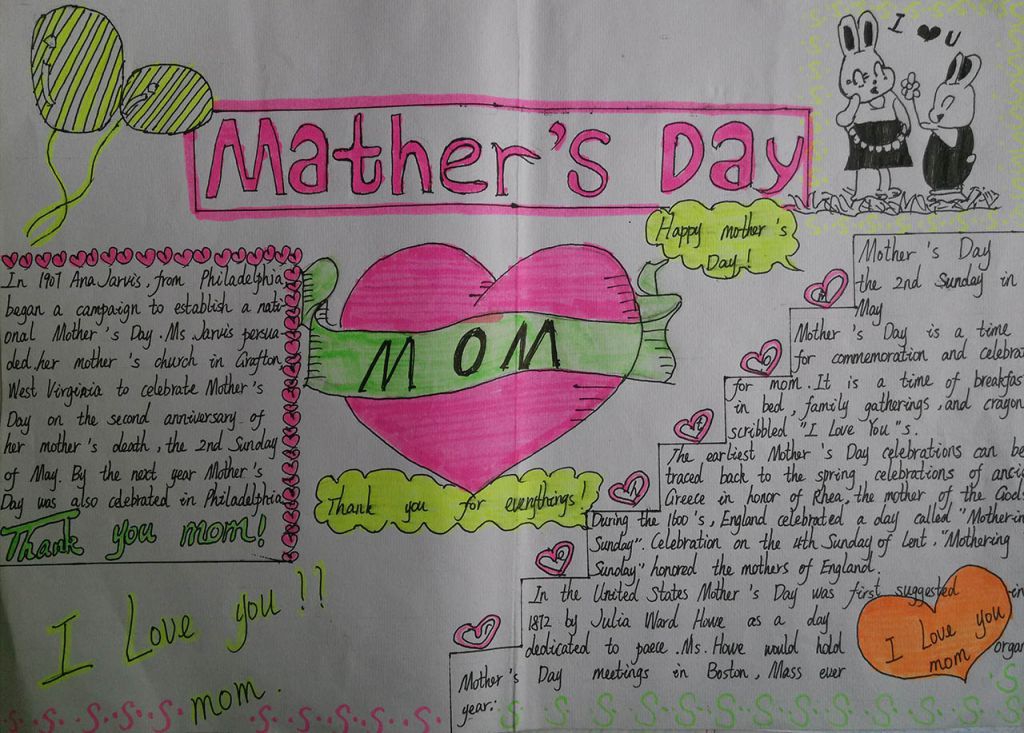 I ❤ U
Mather's Day
Happy mother's
Day!
In 1907 Ana Jarvis, from Philadelphia,
began a campaign to establish a nati-
onal Mother's Day. Ms. Jarvis persua-
ded her mother's church in Grafton,
West Virginia to celebrate Mother's
Day on the second anniversary of
her mother's death, the 2nd Sunday
of May. By the next year Mother's
Day was also celebrated in Philadelphia
Thank you mom!
MOM
Thank you for everythings!
I Love you!!
mom.
Mother's Day
the 2nd Sunday in
May
Mother's Day is a time
for commemoration and celebra
for mom. It is a time of breakfas
in bed, family gatherings, and crayon
scribbled "I Love You"s.
The earliest Mother's Day celebrations can be
traced back to the spring celebrations of anci
Greece in honor of Rhea, the mother of the Gods
During the 1600's, England celebrated a day called "Motherin
Sunday". Celebration on the 4th Sunday of Lent. "Mothering
Sunday" honored the mothers of England.
In the United States Mother's Day was first suggested in
1872 by Julia Ward Howe as a day
dedicated to paece. Ms. Howe would hold organ
Mother's Day meetings in Boston, Mass ever
year.
I Love you
mom